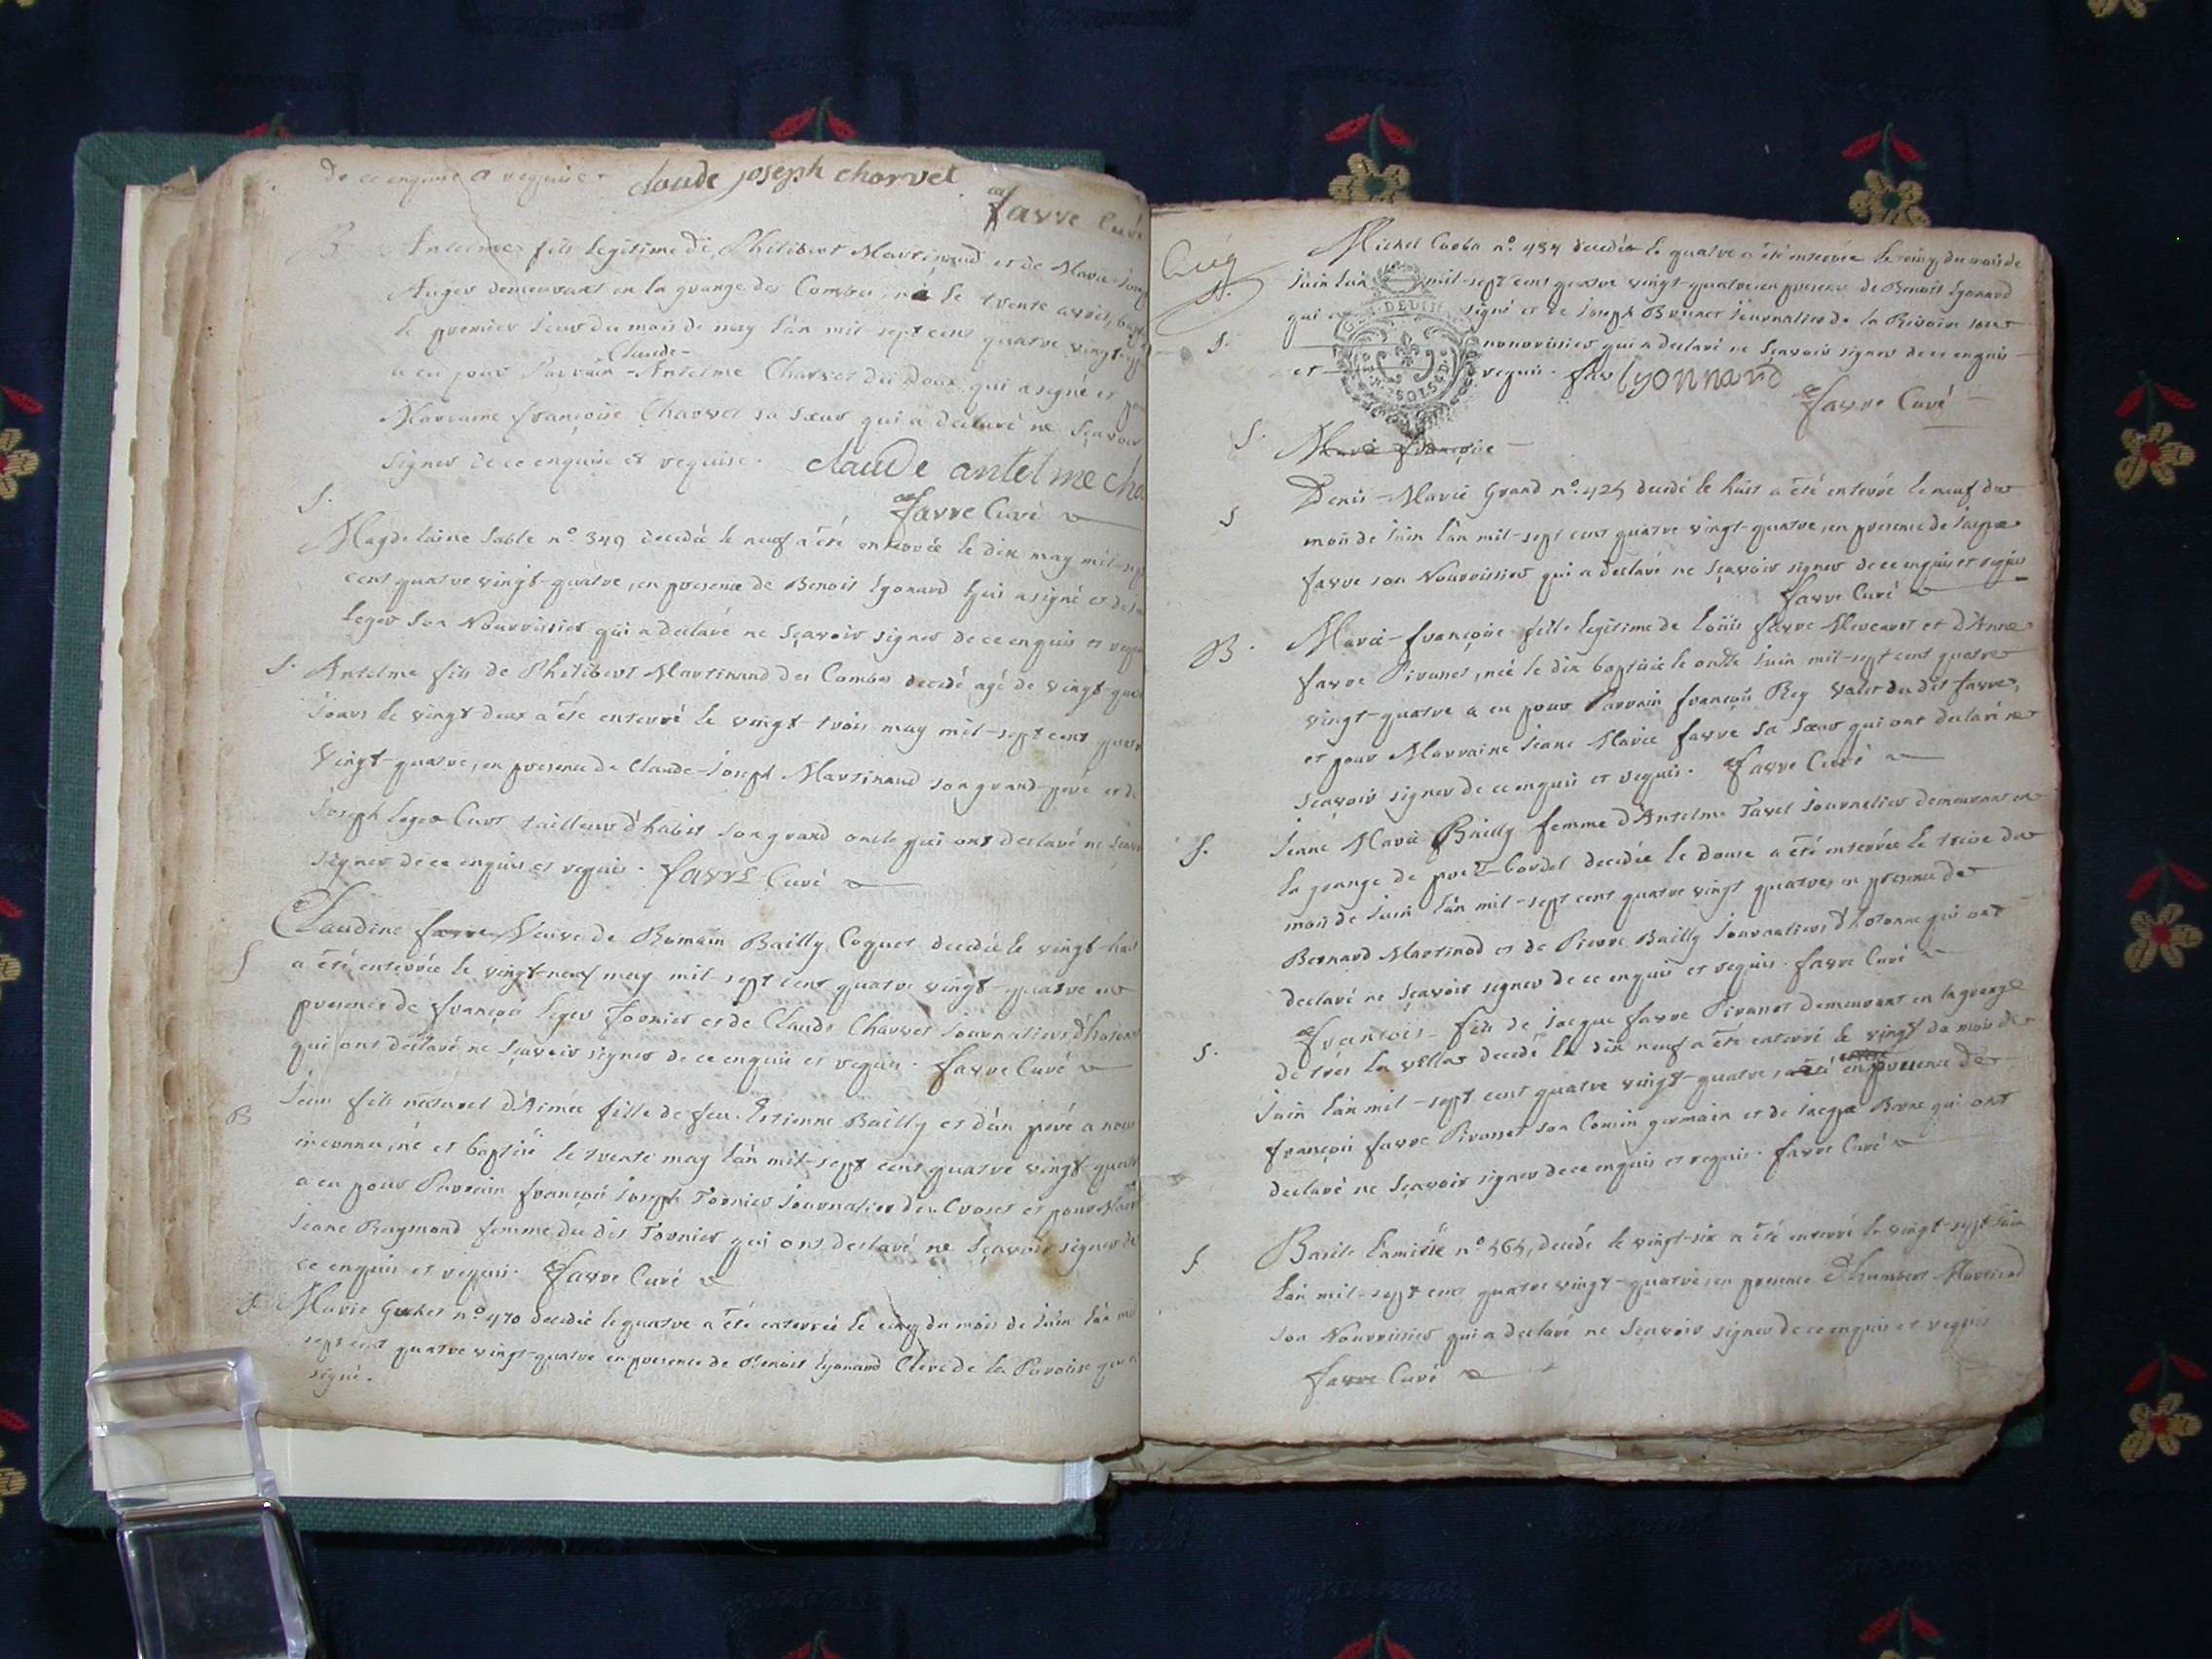 de ce enquise et requise. claude joseph charvet
favre Curé
B Antelme fils legitime de Philibert Martinand et de Marie
Auger demeurant en la grange des Combes né le trente avril,
le premier jour du mois de may l'an mil-sept cent quatre vingt
Claude-
a eu pour Parrain Antelme Charvet du Doux qui a signé et
Marraine françoise Charvet sa sœur qui a declaré ne sçavoir
signer de ce enquise et requise. claude antelme cha
favre Curé
S. Magdelaine Sable n.° 349 decedée le neuf a été enterrée le dix may mil-sep
cent quatre vingt-quatre, en presence de Benoit Lyonard qui a signé et de
Leger son Nourrissier qui a declaré ne sçavoir signer de ce enquis et
S. Antelme fils de Philibert Martinand des Combes decedé agé de vingt-
jours le vingt deux a été enterré le vingt-trois may mil-sept cent
vingt-quatre, en presence de Claude-Joseph Martinand son grand-pere et de
Joseph Leger Curt tailleur d'habits son grand oncle qui ont declaré ne
signer de ce enquis et requis. favre Curé
S Claudine favre Veuve de Romain Bailly Coquet decedée le vingt-hui
a été enterrée le vingt-neuf may mil-sept cent quatre vingt-quatre en
presence de françois Leger Tornier et de Claude Charvet journaliers d'hoton
qui ont declaré ne sçavoir signer de ce enquis et requis. favre Curé
B Jean fils naturel d'Aimée fille de feu Estienne Bailly et d'un père a nous
inconnu, né et baptisé le trente may l'an mil-sept cent quatre vingt-quatr
a eu pour Parrain françois Joseph Tornier journalier des Croset et pour Marr
Jeane Raymond femme du dit Tornier qui ont declaré ne sçavoir signer de
ce enquis et requis. favre Curé
S Marie n.° 470 decedée le quatre a été enterrée le cinq du mois de juin l'an mil
sept cent quatre vingt-quatre en presence de Benoit Lyonard Clerc de la Paroisse qui a
signé.
Michel n.° 484 decedé le quatre a été enterrée le cinq du mois de
juin l'an mil-sept cent quatre vingt-quatre en presence de Benoit Lyonard
S. qui a signé et de Joseph Brunet journalier de la Rivoire son
nourrissier qui a declaré ne sçavoir signer de ce enquis
et requis. lyonnard
favre Curé
S. Marie françoise
S Denis-Marie Grand n.° 425 decedé le huit a été enterré le neuf du
mois de juin l'an mil-sept cent quatre vingt-quatre, en presence de jacque
favre son Nourrissier qui a declaré ne sçavoir signer de ce enquis et requis
favre Curé
B. Marie-françoise fille legitime de Loüis favre et d'Anne
favre Pirasset, née le dix baptisée le onze juin mil-sept cent quatre
vingt-quatre a eu pour Parrain françois Rey valet du dit favre,
et pour Marraine Jeane Marie favre sa sœur qui ont declaré ne
sçavoir signer de ce enquis et requis. favre Curé
S. Jeane Marie Bailly femme d'Antelme Tavel journalier demeurant en
la grange de decedée le douze a été enterrée le treize du
mois de juin l'an mil-sept cent quatre vingt quatre, en presence de
Bernard Martinod et de Pierre Bailly journaliers d'hotonne qui ont
declaré ne sçavoir signer de ce enquis et requis. favre Curé
S. françois fils de jacque favre Pirasset demeurant en la grange
de decedé le dix neuf a été enterré le vingt du mois de
juin l'an mil-sept cent quatre vingt-quatre en presence de
françois favre Pirasset son Cousin germain et de jacque qui ont
declaré ne sçavoir signer de ce enquis et requis. favre Curé
S Basile n.° 464, decedé le vingt-six a été enterré le vingt-sept juin
l'an mil-sept cent quatre vingt-quatre, en presence d'humbert Martinod
son Nourrissier qui a declaré ne sçavoir signer de ce enquis et requis
favre Curé